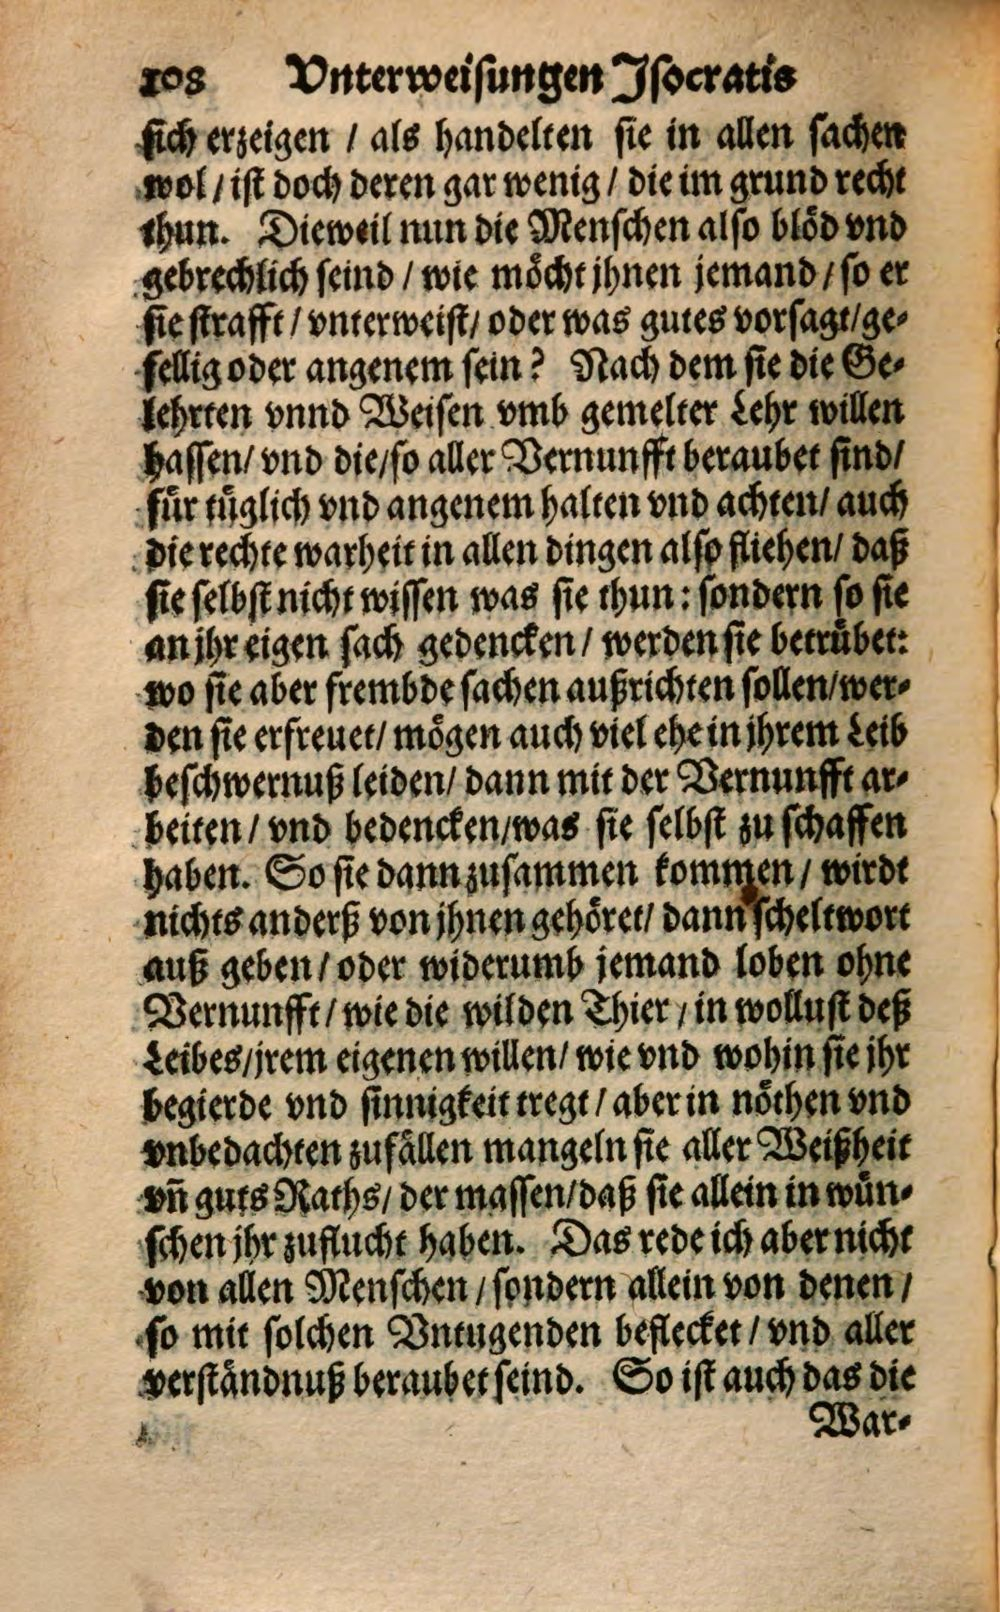 108 Vnterweisungen Jsocratis
sich erzeigen / als handelten sie in allen sachen
wol / ist doch deren gar wenig / die im grund recht
thun. Dieweil nun die Menschen also blöd vnd
gebrechlich seind / wie möcht jhnen jemand / so er
sie strafft / vnterweist / oder was gutes vorsagt / ge-
fellig oder angenem sein? Nach dem sie die Ge-
lehrten vnnd Weisen vmb gemelter Lehr willen
hassen / vnd die / so aller Vernunfft beraubet sind /
für tüglich vnd angenem halten vnd achten / auch
die rechte warheit in allen dingen also fliehen / daß
sie selbst nicht wissen was sie thun: sondern so sie
an jhr eigen sach gedencken / werden sie betrübet:
wo sie aber frembde sachen außrichten sollen / wer-
den sie erfreuet / mögen auch viel ehe in jhrem Leib
beschwernuß leiden / dann mit der Vernunfft ar-
beiten / vnd bedencken / was sie selbst zu schaffen
haben. So sie dann zusammen kommen / wirdt
nichts anderß von jhnen gehöret / dann scheltwort
auß geben / oder widerumb jemand loben ohne
Vernunfft / wie die wilden Thier / in wollust deß
Leibes / jrem eigenen willen / wie vnd wohin sie jhr
begierde vnd sinnigkeit tregt / aber in nöthen vnd
vnbedachten zufällen mangeln sie aller Weißheit
vñ guts Raths / der massen / daß sie allein in wün-
schen jhr zuflucht haben. Das rede ich aber nicht
von allen Menschen / sondern allein von denen /
so mit solchen Vntugenden beflecket / vnd aller
verständnuß beraubet seind. So ist auch das die
War-